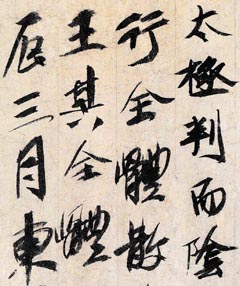 太極判而陰
行全體散
王其全體
辰三月東